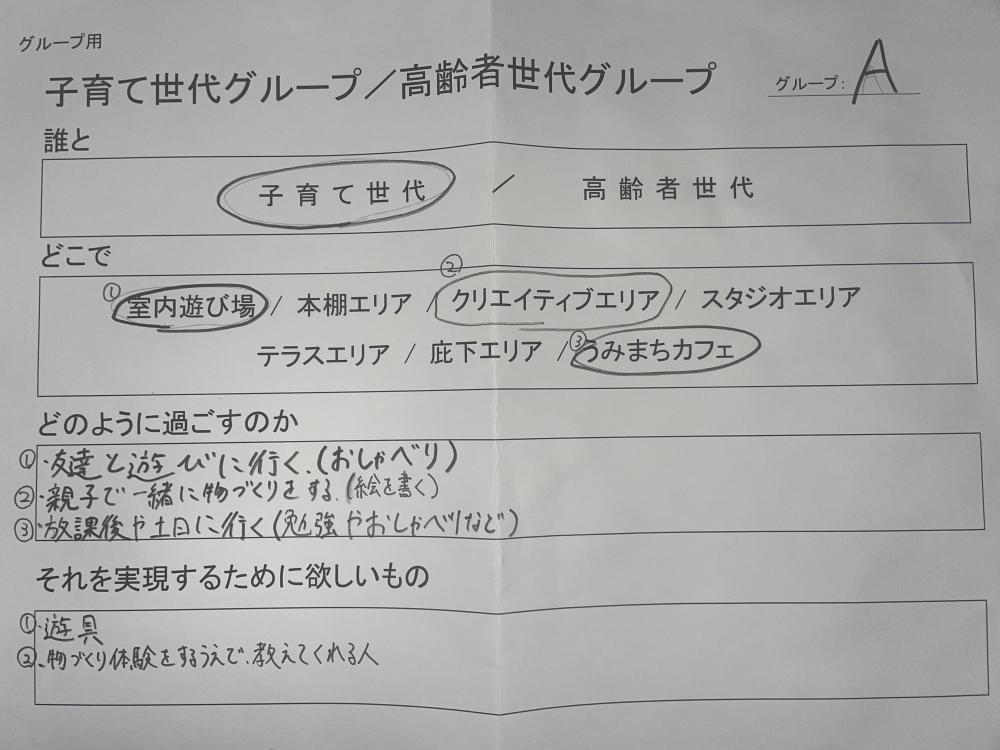 グループ用
子育て世代グループ／高齢者世代グループ
グループ: A
誰と
子育て世代 ／ 高齢者世代
どこで
①室内遊び場 / 本棚エリア / ②クリエイティブエリア / スタジオエリア
テラスエリア / 庇下エリア / ③うみまちカフェ
どのように過ごすのか
①・友達と遊びに行く.(おしゃべり)
②・親子で一緒に物づくりをする.(絵を書く)
③・放課後や土日に行く(勉強やおしゃべりなど)
それを実現するために欲しいもの
①・遊具
②、物づくり体験をするうえで、教えてくれる人